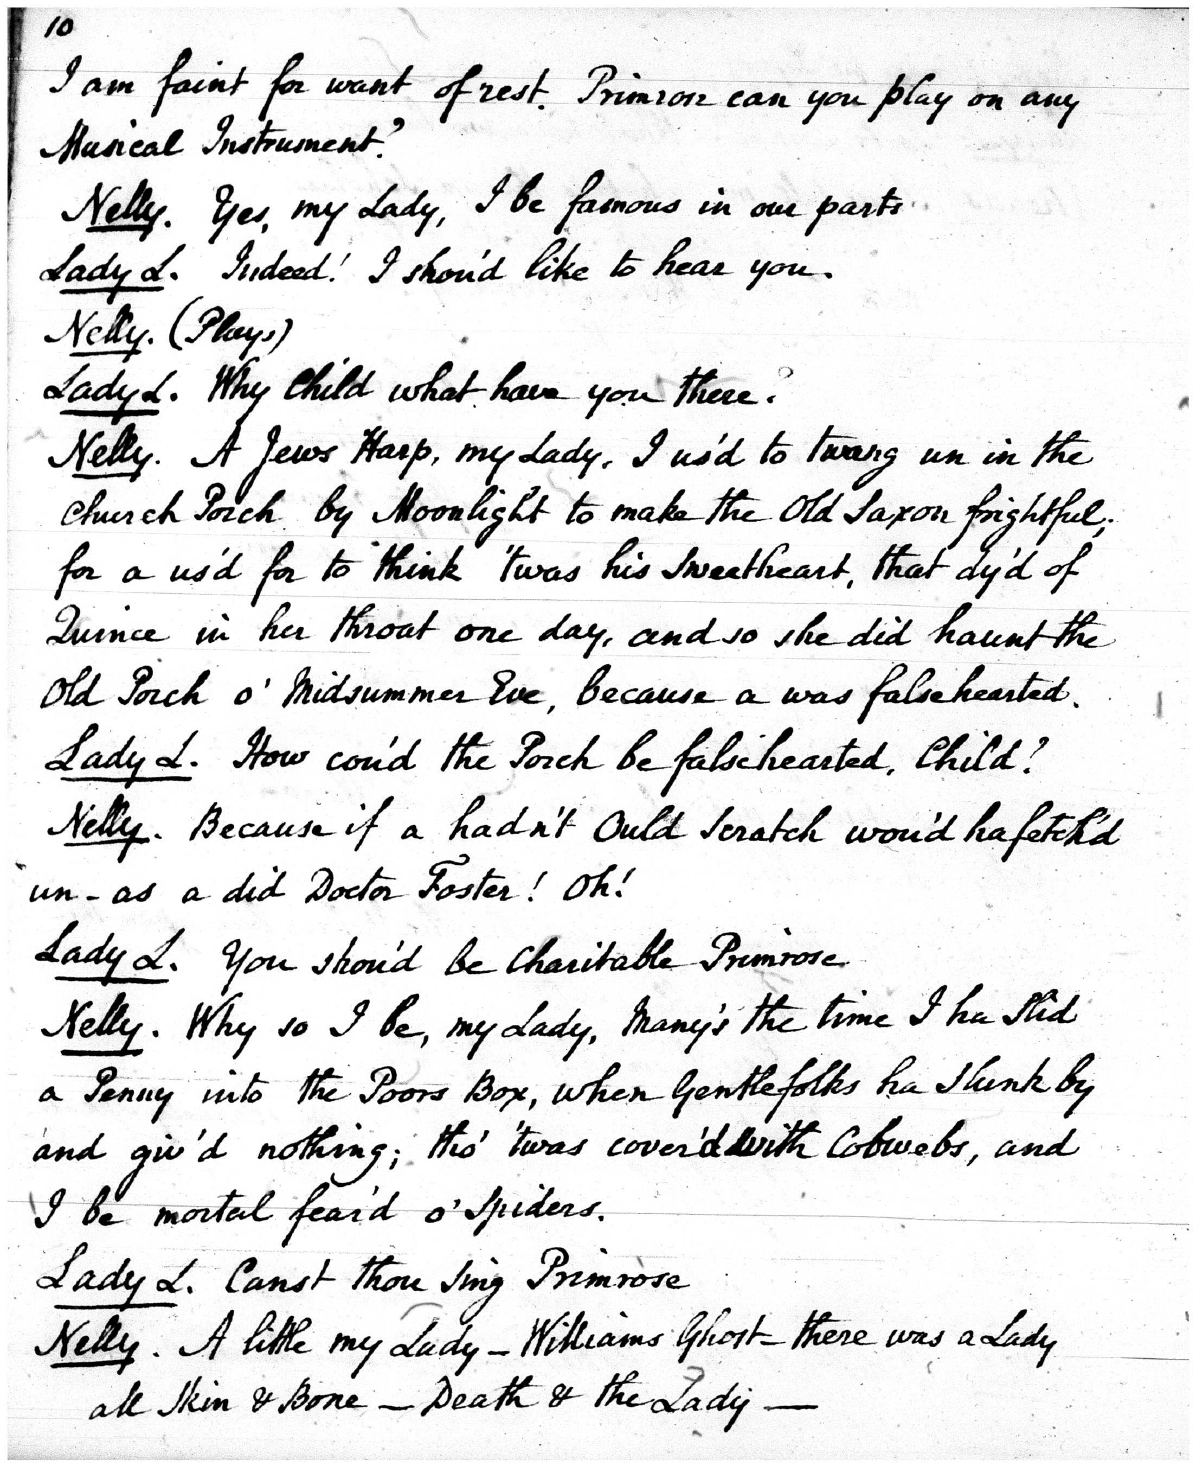 10
I am faint for want of rest. Primrose can you play on any
Musical Instrument?
Nelly. Yes, my Lady, I be famous in our parts
Lady L. Indeed! I shou'd like to hear you.
Nelly. (Plays)
Lady L. Why Child what have you there?
Nelly. A Jews Harp, my Lady, I us'd to twang un in the
Church Porch by Moonlight to make the Old Saxon frightful;
for a us'd for to think 'twas his Sweetheart, that dy'd of
Quince in her throat one day, and so she did haunt the
Old Porch o' Midsummer Eve, because a was falsehearted.
Lady L. How cou'd the Porch be falsehearted, Child?
Nelly. Because if a hadn't Ould Scratch wou'd ha fetch'd
un - as a did Doctor Foster! Oh!
Lady L. You shou'd be Charitable Primrose
Nelly. Why so I be, my Lady, Many's the time I ha Slid
a Penny into the Poors Box, when Gentlefolks ha Slunk by
and giv'd nothing; tho' 'twas cover'd with Cobwebs, and
I be mortal fear'd o' Spiders.
Lady L. Canst thou Sing Primrose
Nelly. A little my Lady - Williams Ghost - there was a Lady
all Skin & Bone - Death & the Lady -